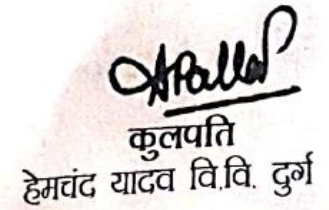 कुलपति
हेमचंद यादव वि.वि. दुर्ग